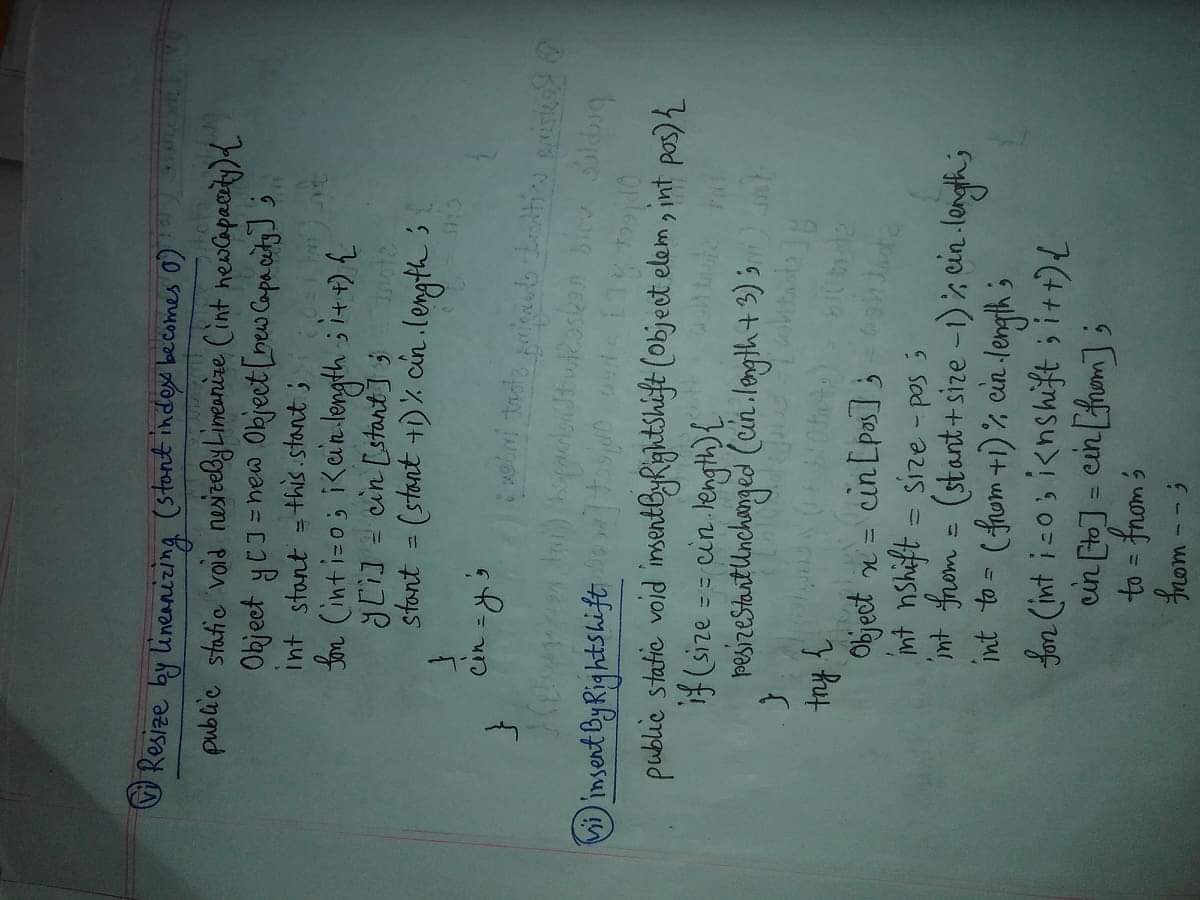 (vi) Resize by linearizing (start index becomes 0)
public static void resizeByLinearize (int newCapacity){
Object y[] = new Object[newCapacity];
int start = this.start;
for (int i=0; i<cir.length; i++) {
y[i] = cir[start];
start = (start +1) % cir.length;
}
cir = y;
}
(vii) insertByRightShift
public static void insertByRightShift (Object elem, int pos) {
if (size == cir.length) {
resizeStartUnchanged (cir.length + 3);
}
try {
Object x = cir[pos];
int nShift = size - pos;
int from = (start + size - 1) % cir.length;
int to = (from +1) % cir.length;
for (int i=0; i<nshift; i++) {
cir[to] = cir[from];
to = from;
from --;